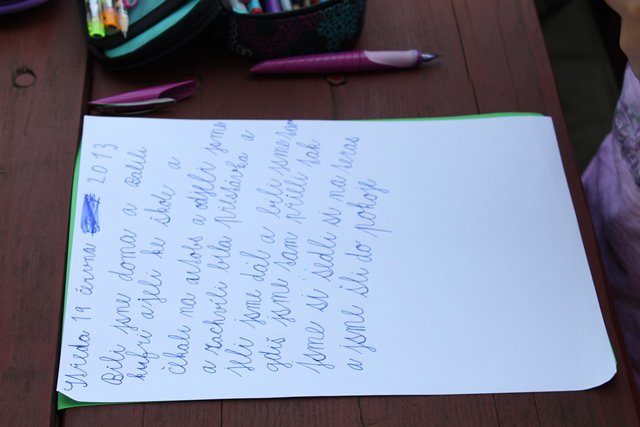 Středa 19 června 2013
Bili jsme doma a balili
kufri a jeli ke škole a
čekali na autobs a odjeli jsme
a zachvíli bila přestávka a
jeli jsme dál a bili jsme tam
gdiš jsme tam přieli tak
jsme si sedli si na teras
a jsme šli do pokoji